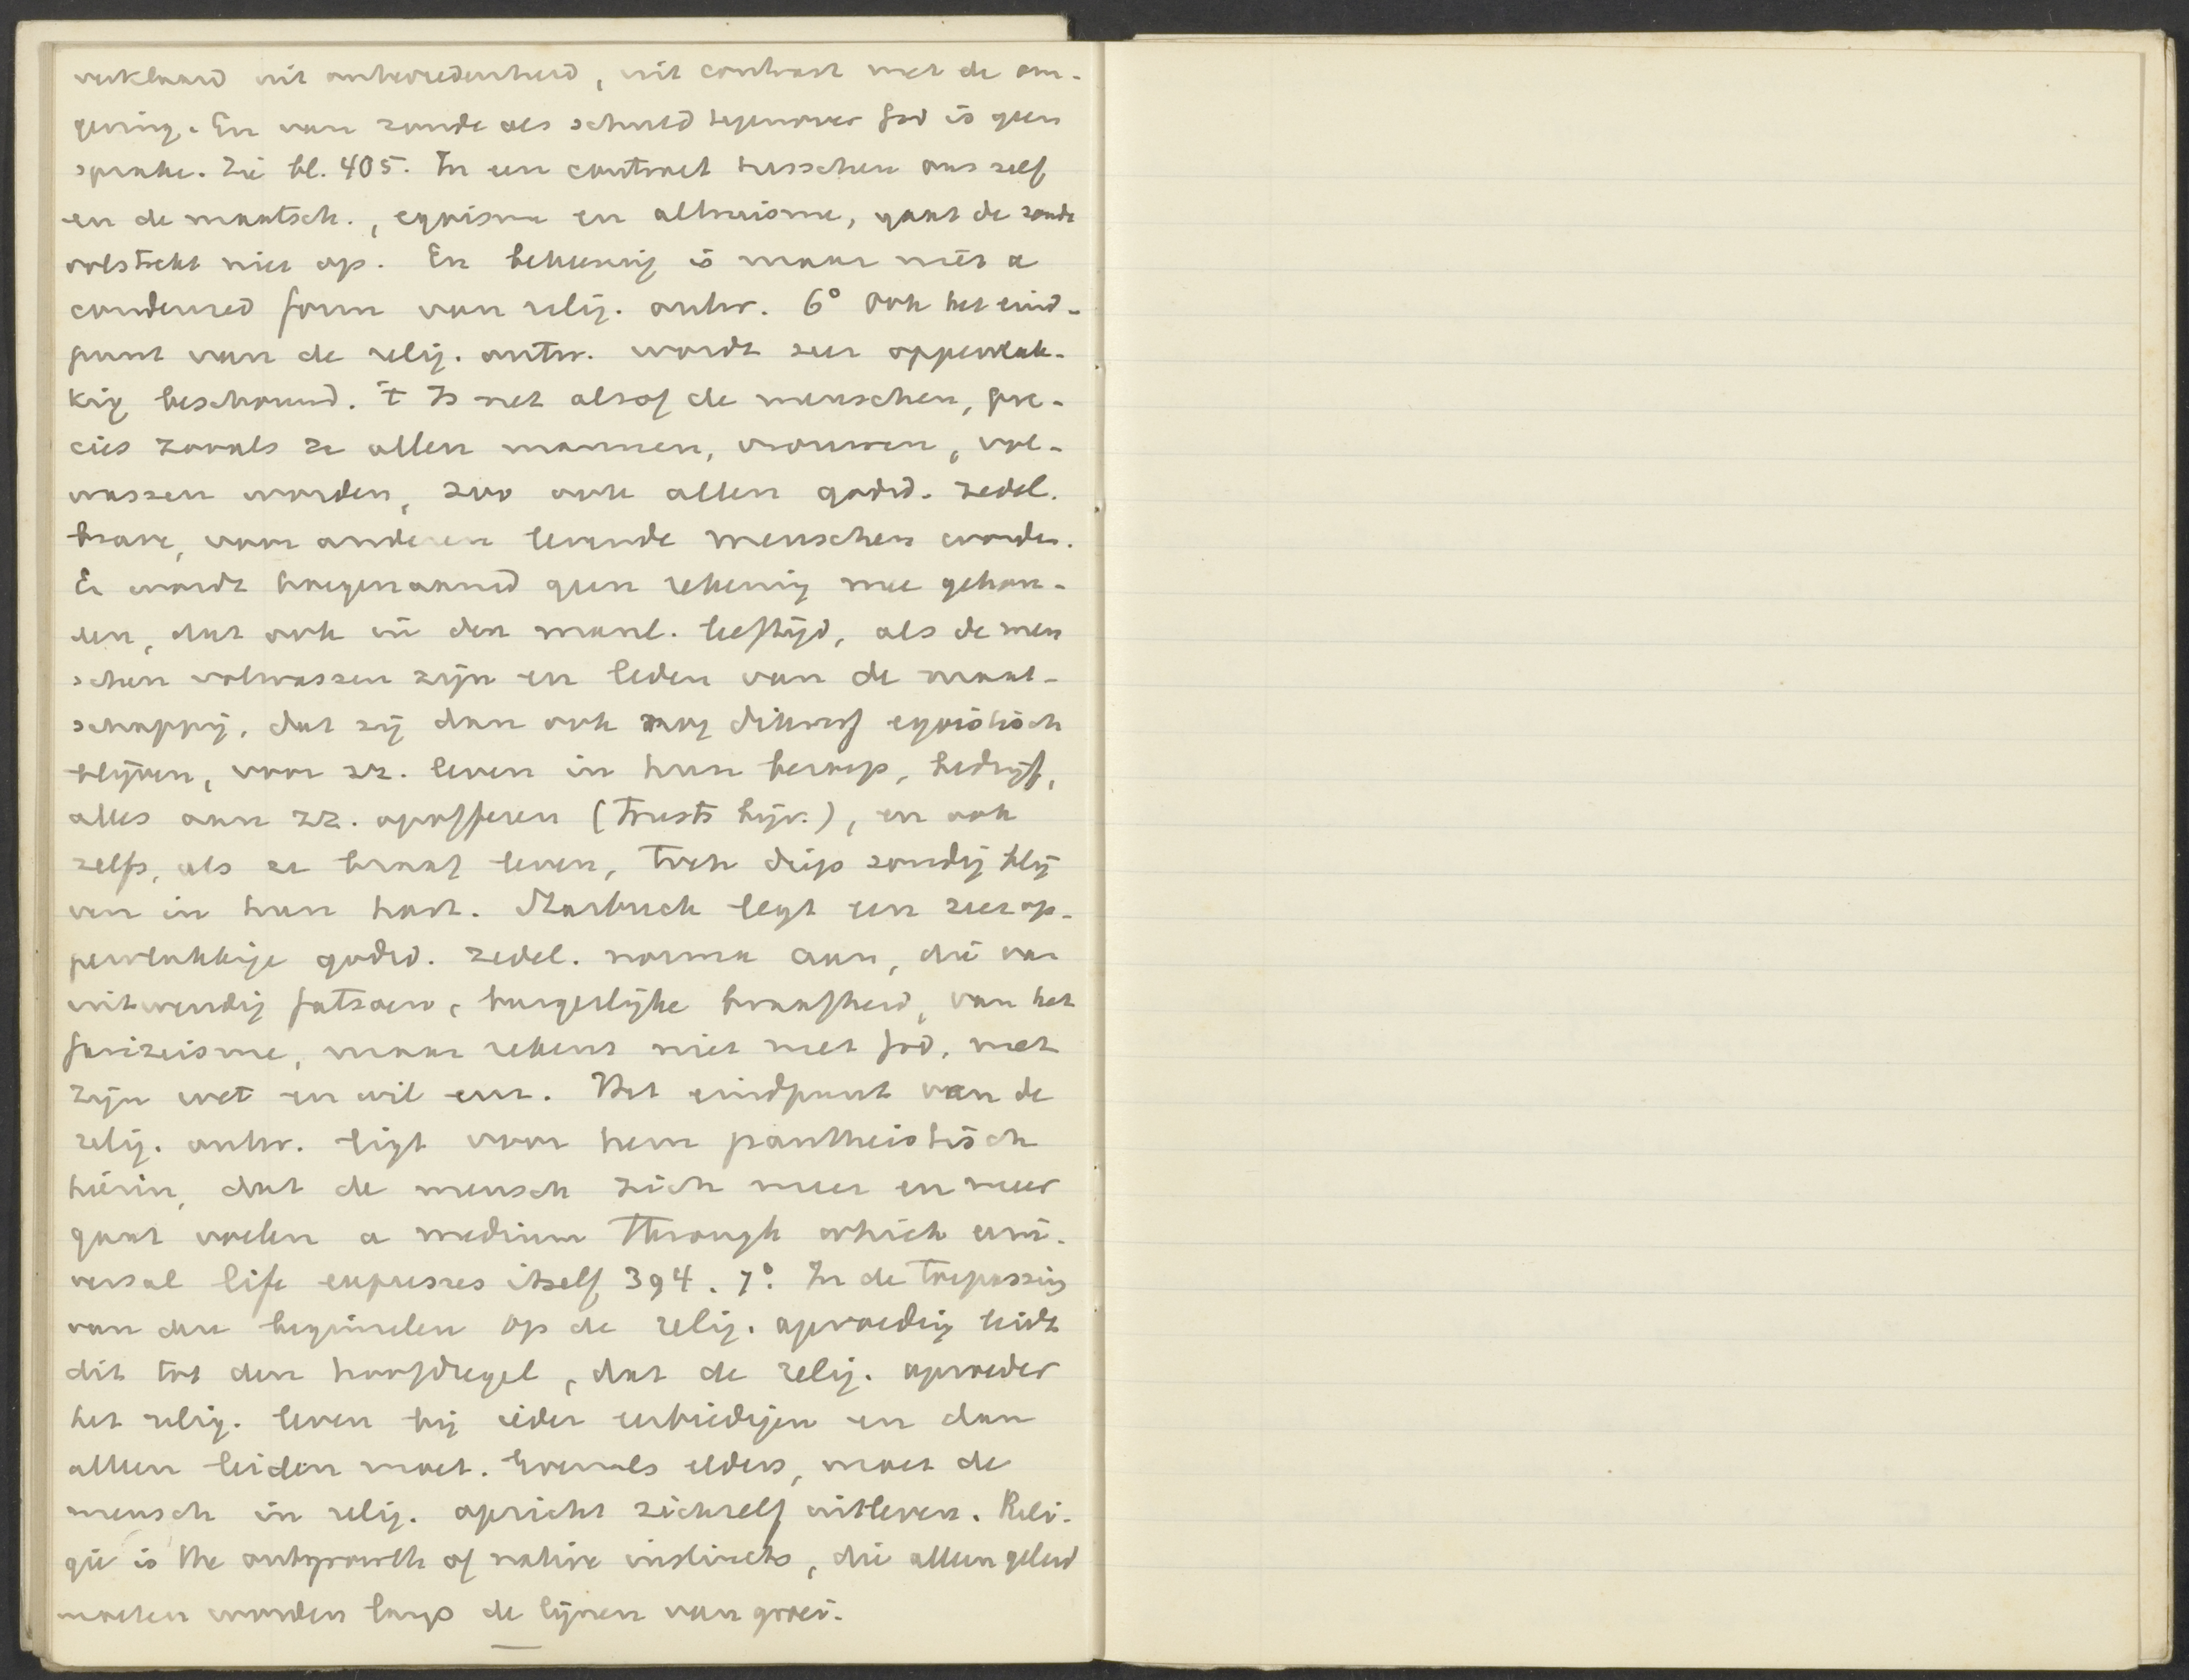 verklaard uit ontevredenheid, uit contrast met de om-
geving. En van zonde als schuld tegenover God is geen
sprake. Zie bl. 405. In een contrast tusschen ons zelf
en de maatsch., egoisme en altruisme, gaat de zonde
volstrekt niet op. En bekeering is maar niet a
condensed form van relig. ontw. 6° Ook het eind-
punt van de relig. ontw. wordt zeer oppervlak-
kig beschouwd. 't Is net alsof de menschen, pre-
cies zooals ze allen mannen, vrouwen, vol-
wassen worden, zoo ook allen godsd. zedel.
brave, voor anderen levende menschen worden.
Er wordt hoegenaamd geen rekening mee gehou-
den, dat ook in den manl. leeftijd, als de men
schen volwassen zijn en leden van de maat-
schappij, dat zij dan ook nog dikwerf egoistisch
blijven, voor zz. leven in hun beroep, bedrijf,
alles aan zz. opofferen (trusts bijv.), en ook
zelfs, als ze braaf leven, toch diep zondig blij
ven in hun hart. Starbuck legt een zeer op-
pervlakkige godsd. zedel. norma aan, die van
uitwendig fatsoen, burgerlijke braafheid, van het
farizeisme, maar rekent niet met God, met
zijn wet en wil enz. Het eindpunt van de
relig. ontw. ligt voor hem pantheistisch
hierin, dat de mensch zich meer en meer
gaat voelen a medium through which uni-
versal life expresses itself 394. 7°. In de toepassing
van deze beginselen op de relig. opvoeding leidt
dit tot den hoofdregel, dat de relig. opvoeder
het relig. leven bij ieder eerbiedigen en dan
alleen leiden moet. Evenals elders, moet de
mensch in relig. opzicht zichzelf uitleven. Reli-
gie is the outgrowth of native instincts, die alleen geleid
moeten worden langs de lijnen van groei.